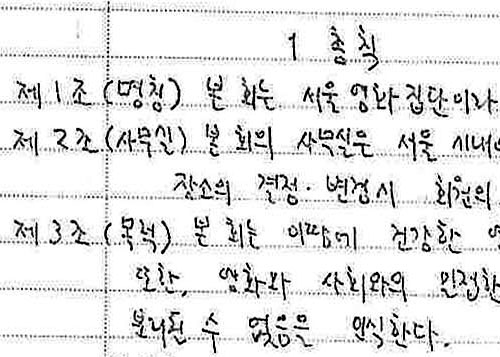 1 총칙
제1조 (명칭) 본 회는 서울영화집단이라
제2조 (사무실) 본 회의 사무실은 서울 시내에
장소의 결정·변경시 회원의
제3조 (목적) 본 회는 이땅에 건강한 영
또한, 영화와 사회와의 밀접한
분리될 수 없음을 인식한다.